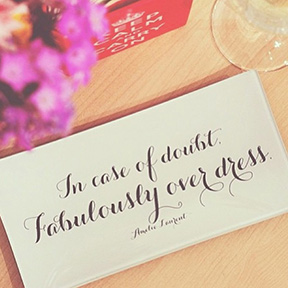 KEEP
CALM
AND
CARRY
ON
In case of doubt.
Fabulously over dress.
Amelie Laurent